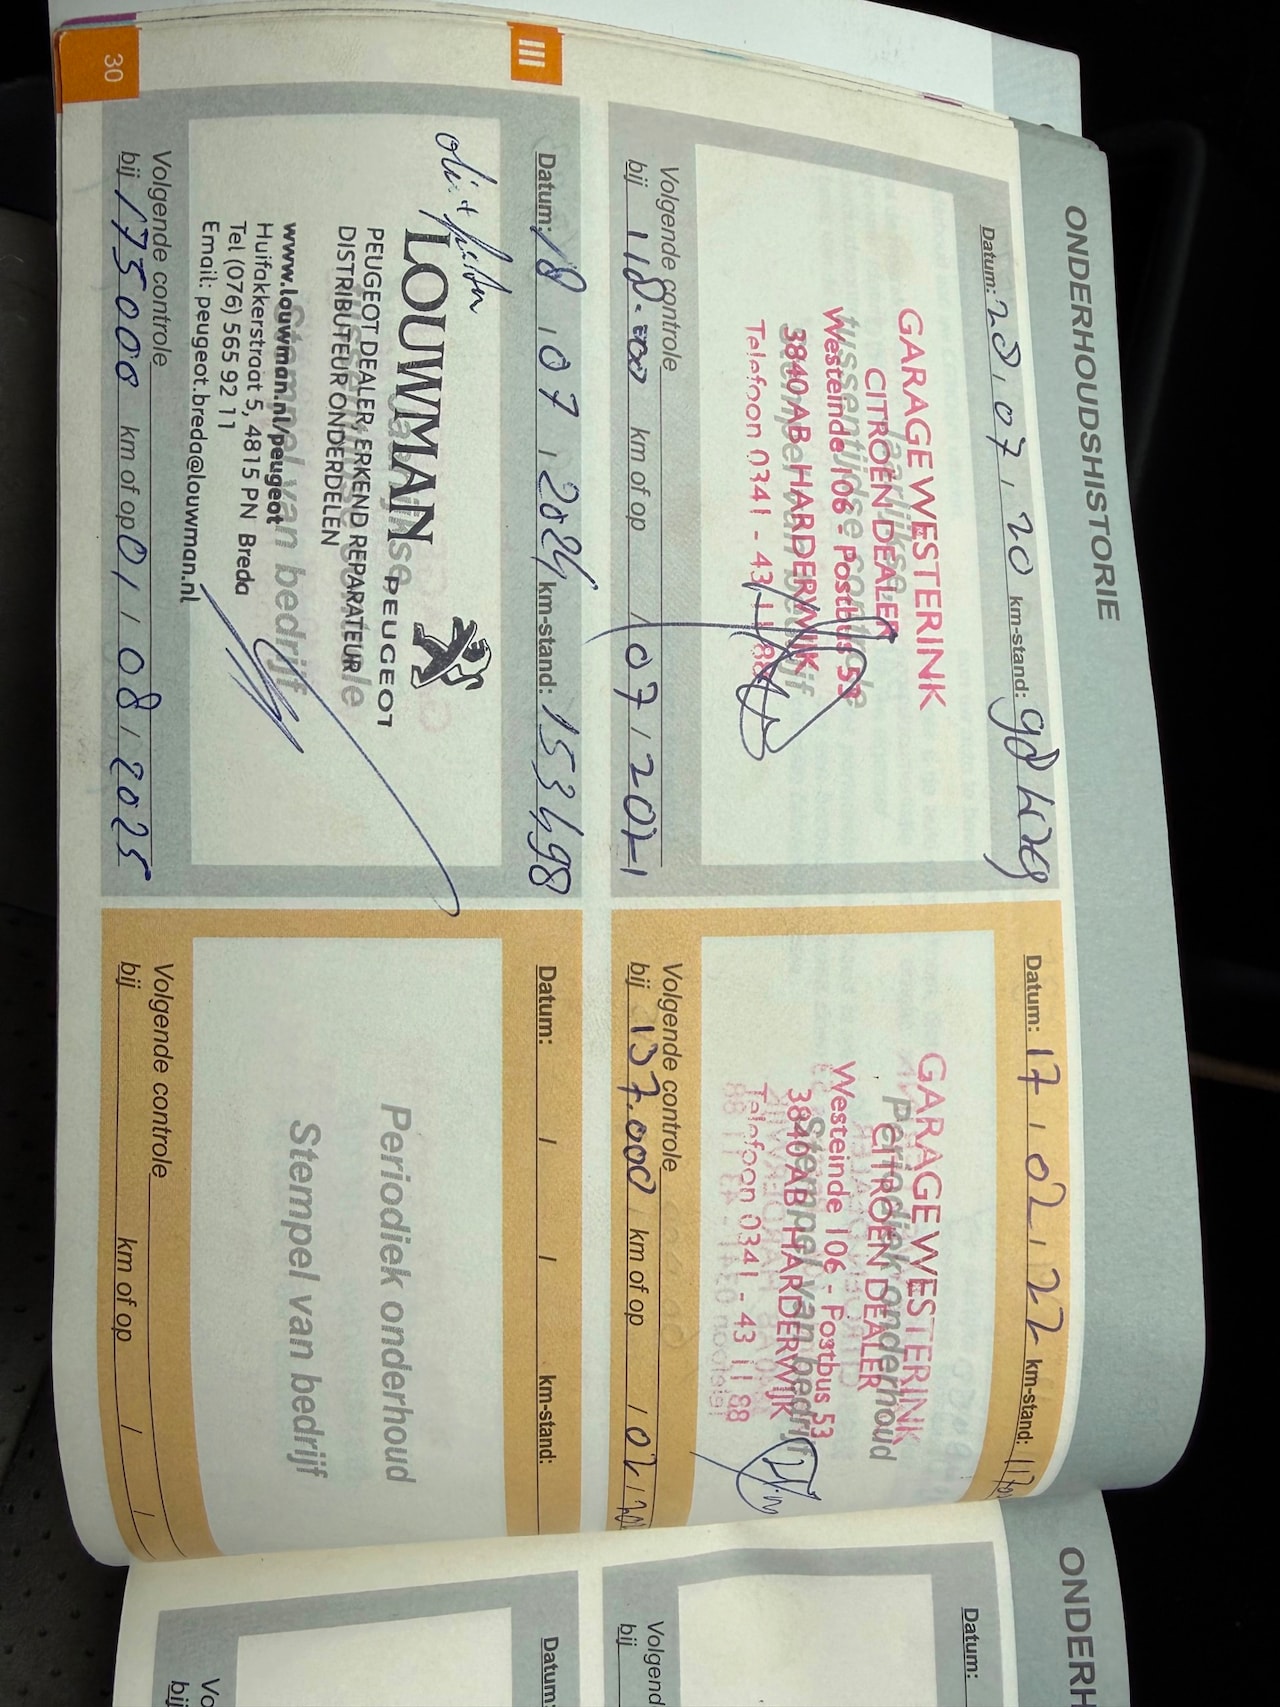 ONDERHOUDSHISTORIE
Datum: 28 / 07 / 20 km-stand:
Jaarlijkse
tussentijdse controle
Stempel van bedrijf
GARAGE WESTERINK
CITROËN DEALER
Westeinde 106 - Postbus 53
3840 AB HARDERWIJK
Telefoon 0341 - 43 11 88
Volgende controle
bij 118.000 km of op / 07 / 2021
Datum: 17 / 02 / 22 km-stand:
Periodiek onderhoud
Stempel van bedrijf
GARAGE WESTERINK
CITROËN DEALER
Westeinde 106 - Postbus 53
3840 AB HARDERWIJK
Telefoon 0341 - 43 11 88
Volgende controle
bij 137.000 km of op / 02 /
Datum: 18 / 07 / 2024 km-stand: 153498
LOUWMAN
PEUGEOT
PEUGEOT DEALER, ERKEND REPARATEUR
DISTRIBUTEUR ONDERDELEN
Stempel van bedrijf
www.louwman.nl/peugeot
Huifakkerstraat 5, 4815 PN Breda
Tel (076) 565 92 11
Email: peugeot.breda@louwman.nl
Volgende controle
bij 175000 km of op 01 / 08 / 2025
Datum: / / km-stand:
Periodiek onderhoud
Stempel van bedrijf
Volgende controle
bij km of op / /
III
30
ONDERH
Datum:
Volgend
bij
Datum:
Vo
bij